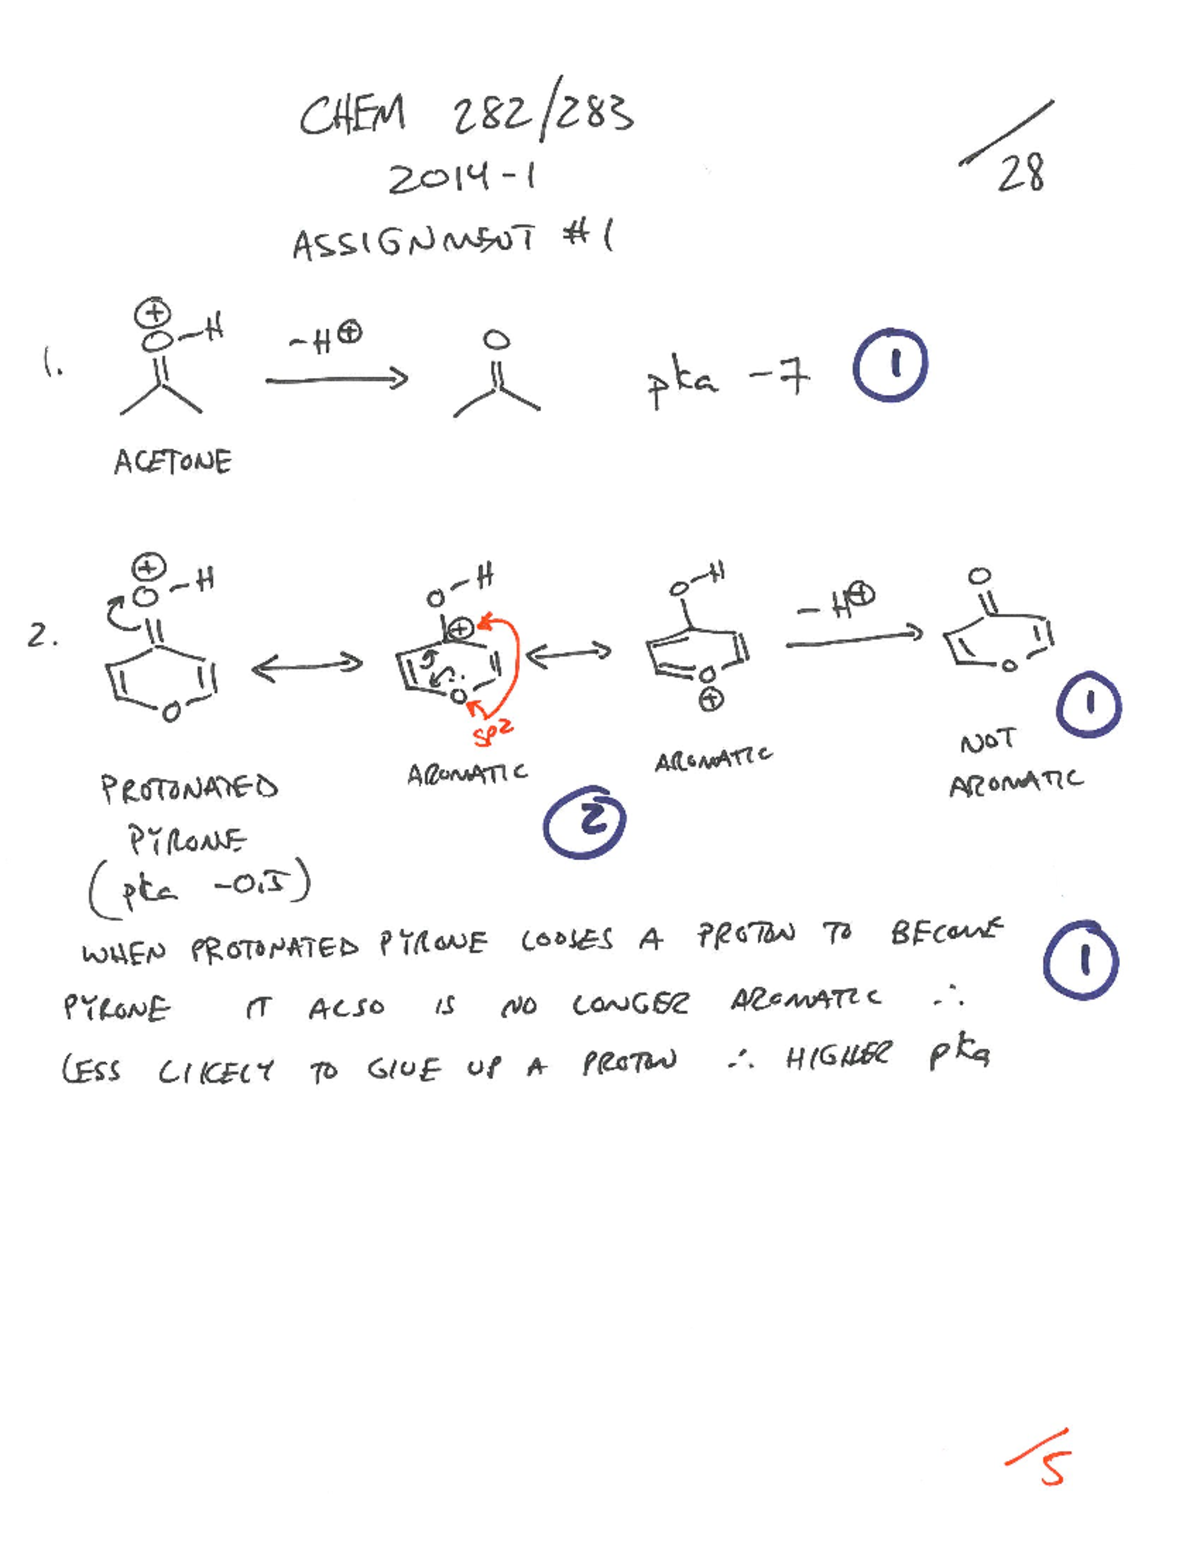 CHEM 282/283
2014-1
/28
ASSIGNMENT #1
1.
⊕
O-H
-H⊕
O
pka -7
1
ACETONE
2.
⊕
O-H
O
O-H
⊕
O
sp2
O-H
O
⊕
-H⊕
O
O
1
PROTONATED
PYRONE
(pka -0.5)
AROMATIC
2
AROMATIC
NOT
AROMATIC
WHEN PROTONATED PYRONE LOOSES A PROTON TO BECOME
1
PYRONE IT ALSO IS NO LONGER AROMATIC ∴
LESS LIKELY TO GIVE UP A PROTON ∴ HIGHER pka
/5